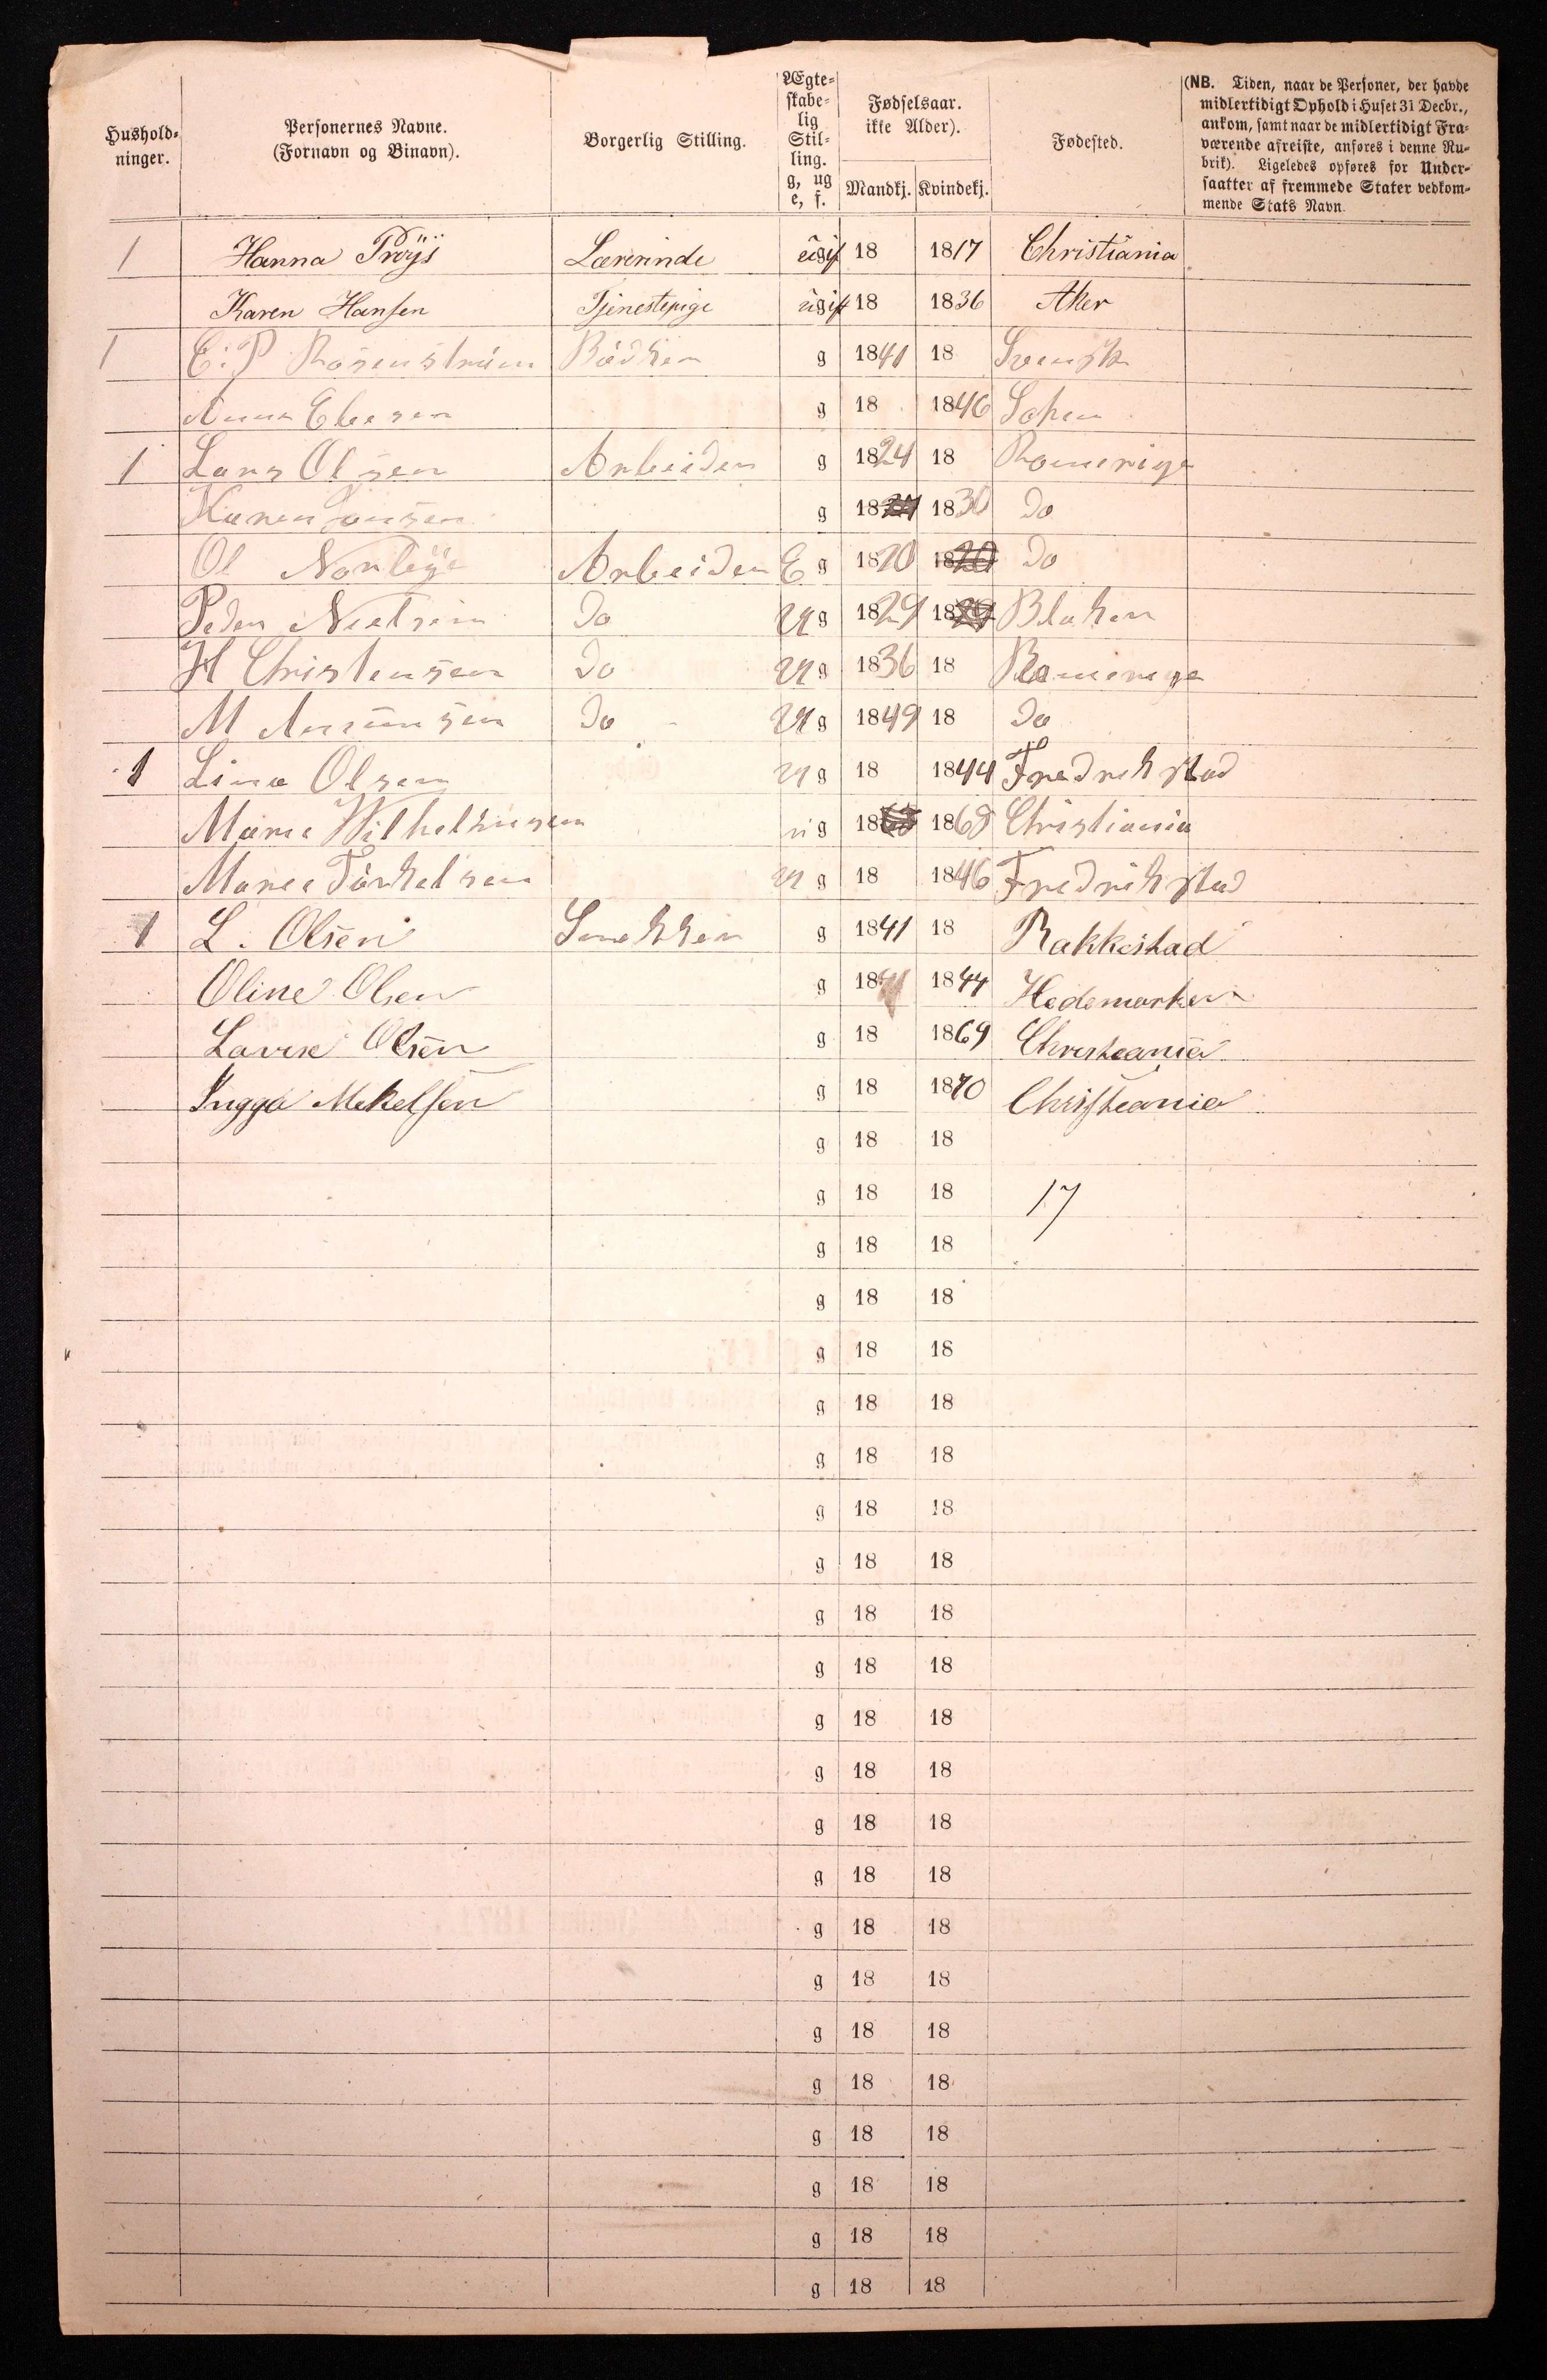 Hushold-
ninger.
Personernes Navne.
(Fornavn og Binavn).
Borgerlig Stilling.
Ægte-
skabe-
lig
Stil-
ling.
g, ug
e, f.
Fødselsaar.
ikke Alder).
Mandkj. Kvindekj.
Fødested.
(NB. Tiden, naar de Personer, der havde
midlertidigt Ophold i Huset 31 Decbr.,
ankom, samt naar de midlertidigt Fra-
værende afreiste, anføres i denne Ru-
brik). Ligeledes opføres for Under-
saatter af fremmede Stater vedkom-
mende Stats Navn.
1 Hanna Lærerinde ugift 18 1817 Christiania
Karen Hansen Tjenestepige ugift 18 1836 Aker
1 Bödker g 1841 18 Svensk
Anna g 18 1846
1 Lars Olsen Arbeider g 1824 18 Romerige
Karen g 18 1830 Do
Ol Arbeider E g 1820 18 Do
Peder Nielsen Do ug 1829 18 Blaker
H Christensen Do ug 1836 18 Romerige
M Do ug 1849 18 Do
1 Lina Olsen ug 18 1844 Fredrikstad
Marie Wilhelmsen ug 18 1868 Christiania
Maree Törkelsen ug 18 1846 Fredrikstad
1 L. Olsen Snekker g 1841 18 Rakkestad
Oline Olsen g 18 1844 Hedemarken
Lovise Olsen g 18 1869 Christeania
Ingga Mekelsen g 18 1870 Christeania
g 18 18
g 18 18 17
g 18 18
g 18 18
g 18 18
g 18 18
g 18 18
g 18 18
g 18 18
g 18 18
g 18 18
g 18 18
g 18 18
g 18 18
g 18 18
g 18 18
g 18 18
g 18 18
g 18 18
g 18 18
g 18 18
g 18 18
g 18 18